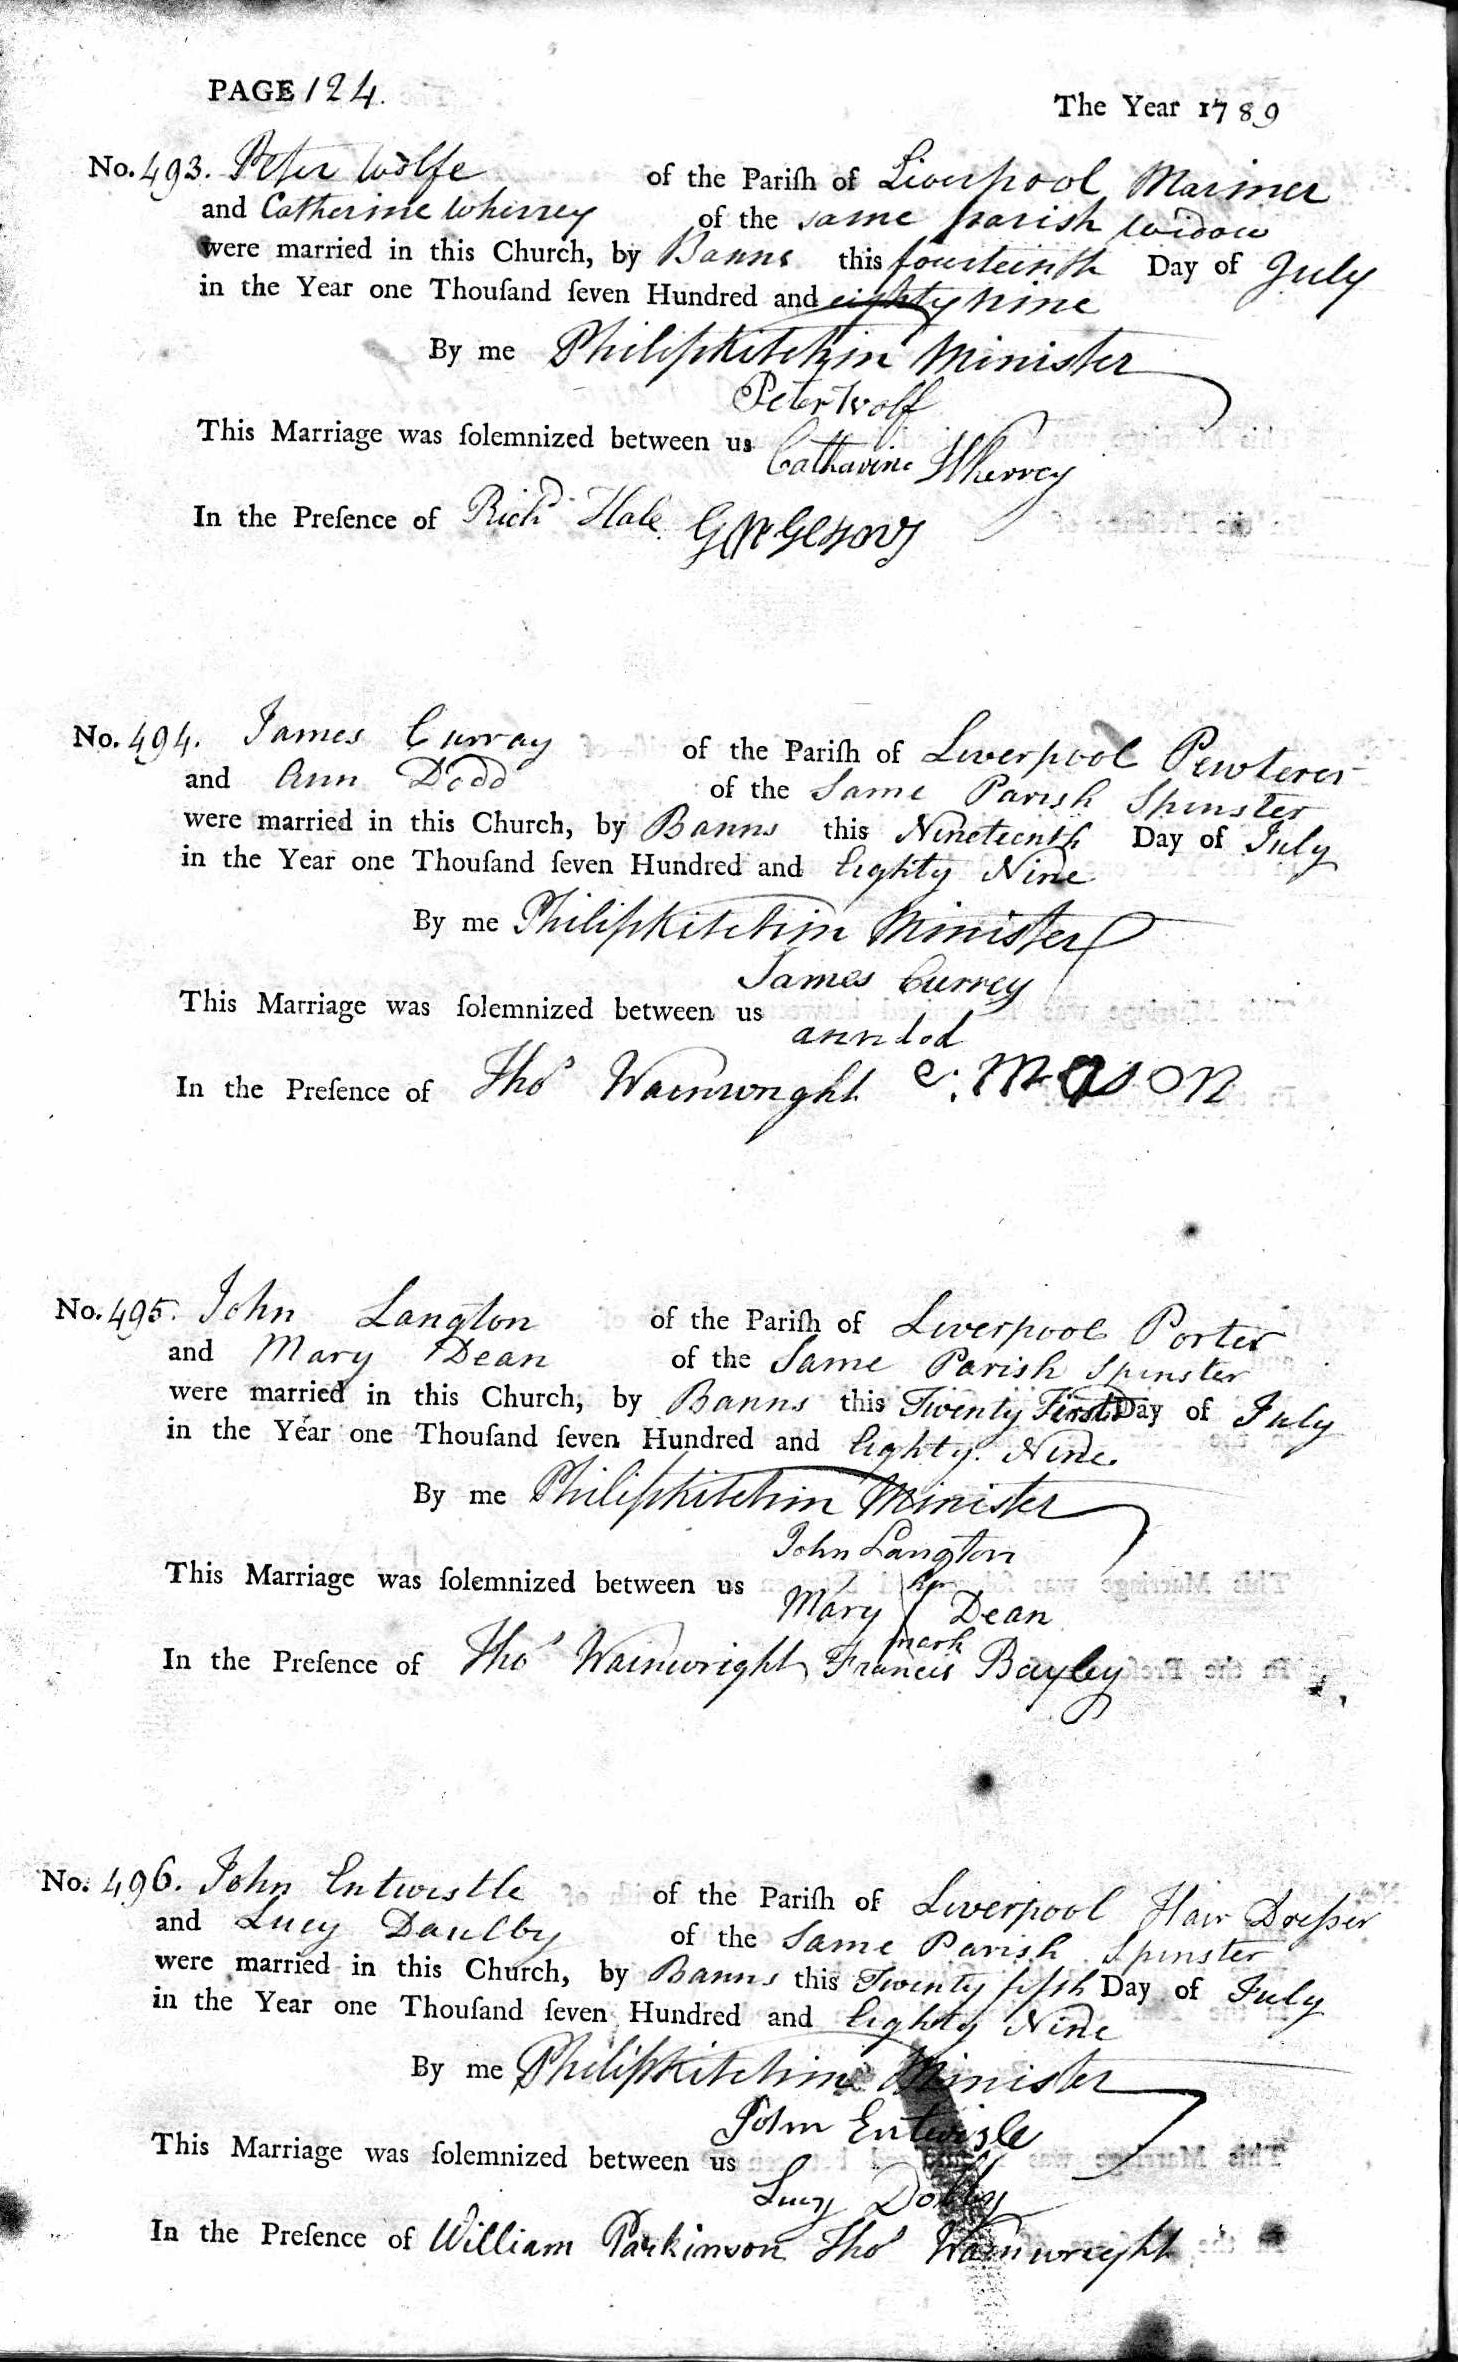 PAGE 124.
The Year 1789
No. 493. Peter Wolfe of the Pariſh of Liverpool Mariner
and Catherine Wherrey of the same parish Widow
were married in this Church, by Banns this fourteenth Day of July
in the Year one Thouſand ſeven Hundred and eighty nine
By me Philip Kitchin Minister
Peter Wolff
This Marriage was ſolemnized between us
Catharine Wherrey
In the Preſence of Richd Hale
No. 494. James Curray of the Pariſh of Liverpool Pewterer
and Ann Dodd of the Same Parish Spinster
were married in this Church, by Banns this Nineteenth Day of July
in the Year one Thouſand ſeven Hundred and Eighty Nine
By me Philip Kitchin Minister
James Currey
This Marriage was ſolemnized between us
ann dod
In the Preſence of Thos Wainwright C. Mason
No. 495. John Langton of the Pariſh of Liverpool Porter
and Mary Dean of the Same Parish Spinster
were married in this Church, by Banns this Twenty First Day of July
in the Year one Thouſand ſeven Hundred and Eighty Nine.
By me Philip Kitchin Minister
John Langton
This Marriage was ſolemnized between us
her
Mary Dean
mark
In the Preſence of Thos Wainwright Francis Bayley
No. 496. John Entwistle of the Pariſh of Liverpool Hair Dreſser
and Lucy Daulby of the Same Parish Spinster
were married in this Church, by Banns this Twenty fifth Day of July
in the Year one Thouſand ſeven Hundred and Eighty Nine
By me Philip Kitchin Minister
John Entwisle
This Marriage was ſolemnized between us
Lucy Dolby
In the Preſence of William Parkinson Thos Wainwright